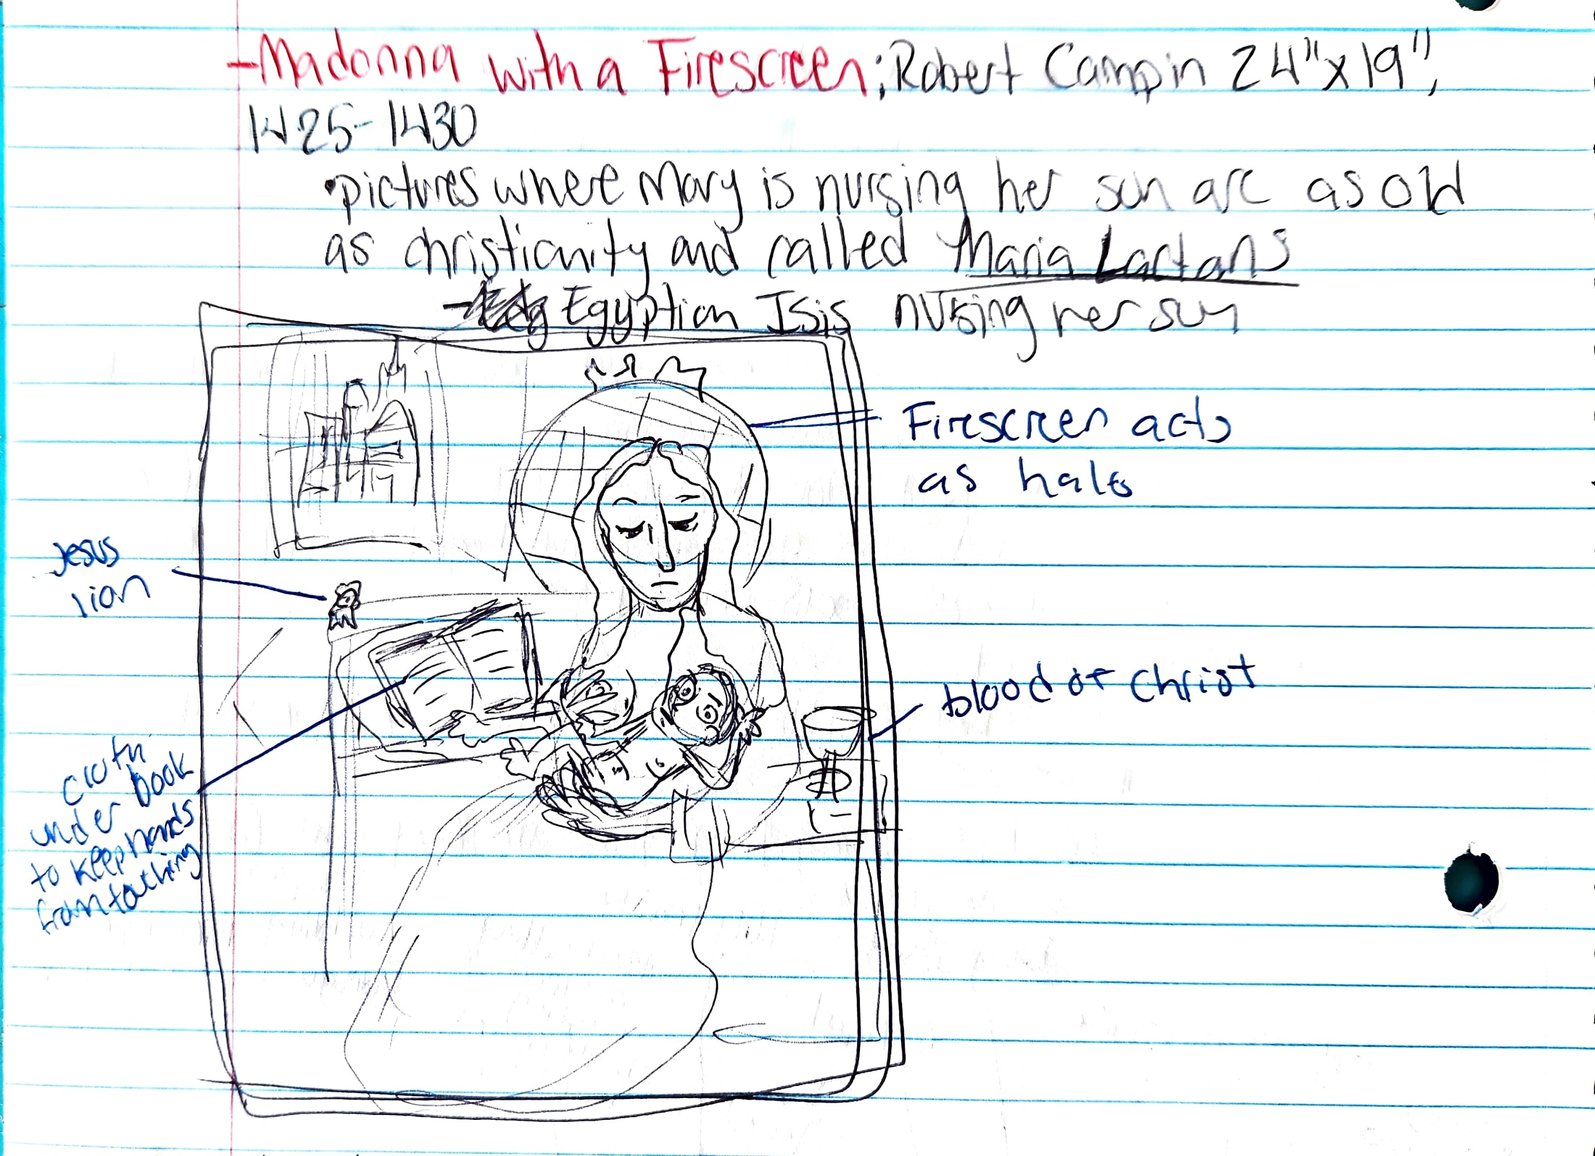 -Madonna with a Firescreen; Robert Campin 24"x19",
1425-1430
•pictures where Mary is nursing her sun are as old
as christianity and called Maria Lactans
- Egyptian Isis nursing her sun
Firescreen acts
as halo
Jesus
lion
blood of Christ
cloth
under book
to keep hands
from touching